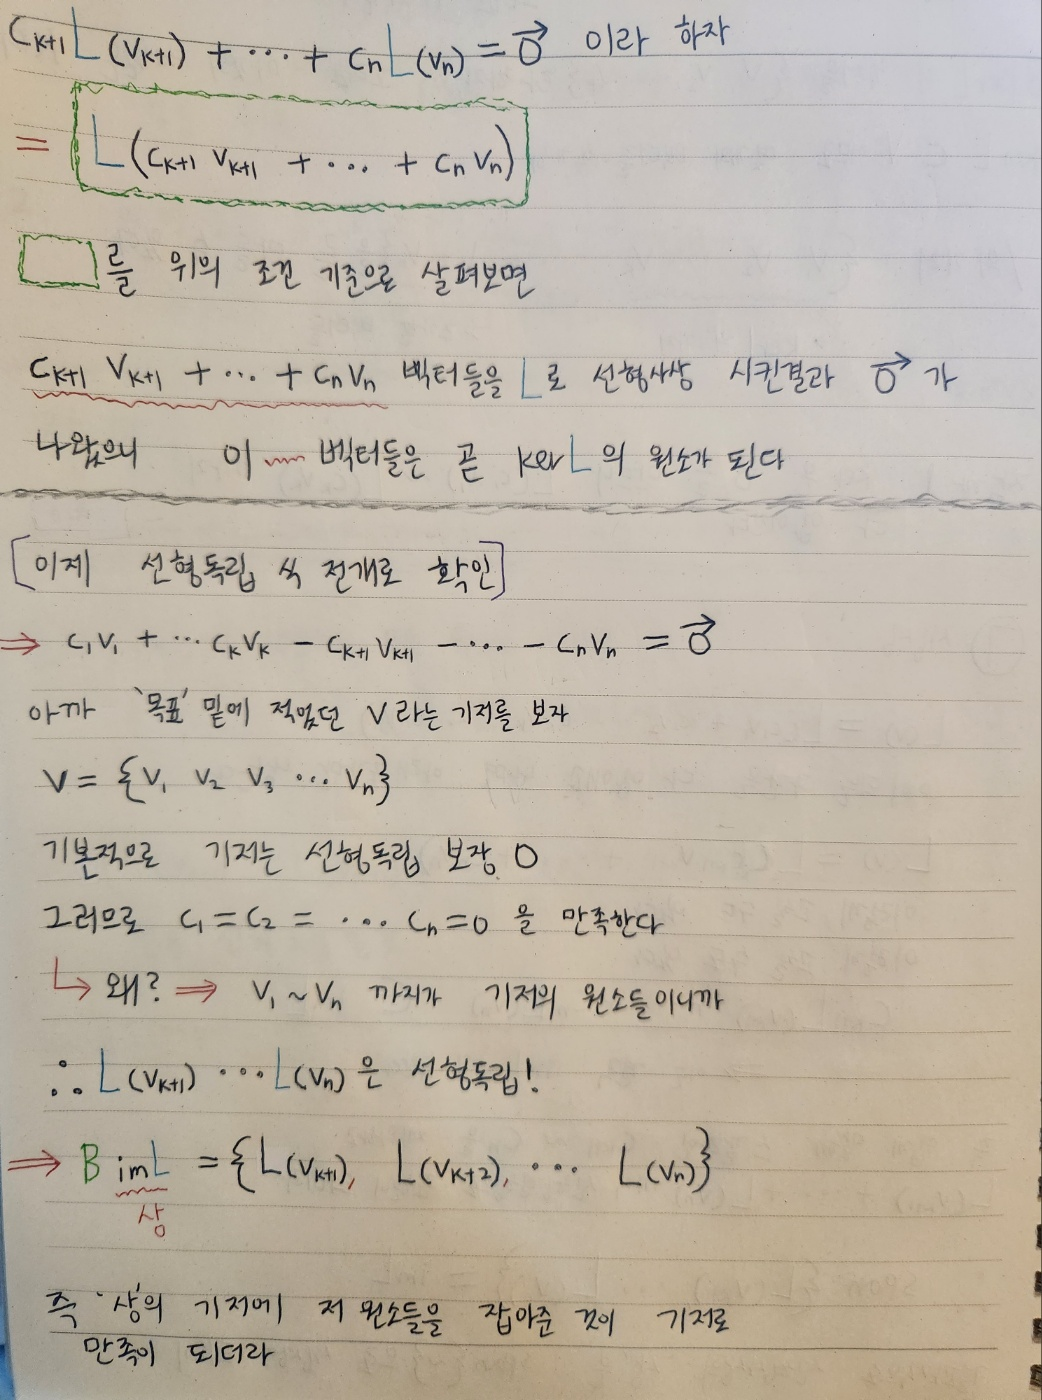 C_{k+1}L(V_{k+1}) + ⋯ + C_nL(V_n) = \vec{0} 이라 하자
= L(C_{k+1} V_{k+1} + ⋯ + C_n V_n)
를 위의 조건 기준으로 살펴보면
C_{k+1} V_{k+1} + ⋯ + C_n V_n 벡터들을 L로 선형사상 시킨결과 \vec{0} 가
나왔으니 이 벡터들은 곧 ker L의 원소가 된다
[이제 선형독립 식 전개로 확인]
⇒ C_1V_1 + ⋯ C_kV_k − C_{k+1}V_{k+1} − ⋯ − C_nV_n = \vec{0}
아까 '목표' 밑에 적었던 V라는 기저를 보자
V = {V_1 V_2 V_3 ⋯ V_n}
기본적으로 기저는 선형독립 보장 O
그러므로 C_1 = C_2 = ⋯ C_n = 0 을 만족한다
↳ 왜? ⇒ V_1 ~ V_n 까지가 기저의 원소들이니까
∴ L(V_{k+1}) ⋯ L(V_n)은 선형독립!
⇒ B imL = {L(V_{k+1}), L(V_{k+2}), ⋯ L(V_n)}
상
즉 '상'의 기저에 저 원소들을 잡아준 것이 기저로
만족이 되더라